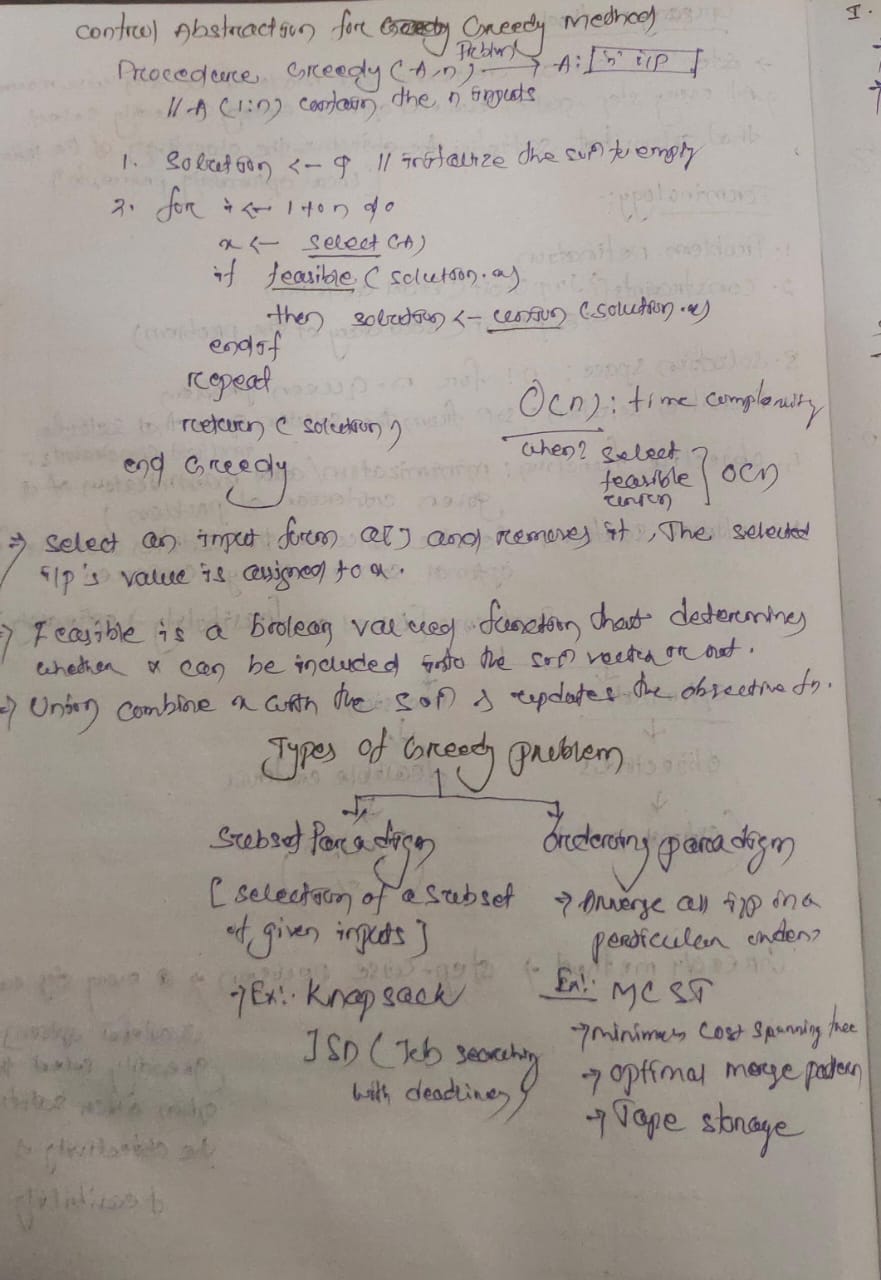 Control Abstraction for Greedy Method
Procedure Greedy (A, n) Problem → A: [ 'n' i/p ]
// A (1:n) contain the n inputs
1. Solution <- φ // initialize the solⁿ to empty
2. for i <- 1 to n do
x <- select (A)
if feasible (solution, x)
then solution <- union (solution, x)
endif
repeat
return (solution)
end Greedy
O(n): time complexity
when? select
feasible } O(n)
union
⇒ Select an input form a[] and removes it, The selected
i/p's value is assigned to x.
⇒ Feasible is a boolean valued function that determines
whether x can be included into the solⁿ vector or not.
⇒ Union combine x with the solⁿ & updates the objective fn.
Types of Greedy problem
Subset Paradigm
[selection of a subset
of given inputs]
→ Ex:- Knapsack
JSD (Job searching
with deadlines)
Ordering paradigm
→ all i/p in a
particular order
Ex:- MCST
→ minimum cost spanning tree
→ optimal merge pattern
→ Tape storage
I.